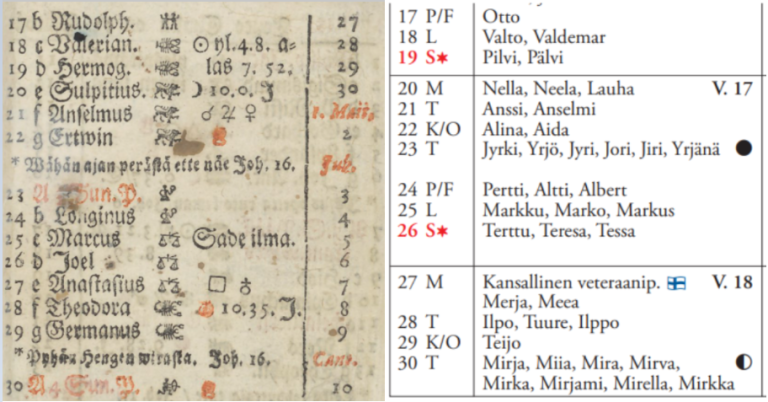 17 b Rudolph. 27
18 c Valerian. ☉ yl. 4. 8. a- 28
19 d Hermog. las 7. 52. 29
20 e Sulpitius. ☽ 10. 0. J 30
21 f Anselmus ♂ ♃ ♀ 1. Maii.
22 g Ertwin 2
* Wähän ajan perästä ette näe Joh. 16. Jub.
23 A Sun. P. 3
24 b Longinus 4
25 c Marcus Sade ilma. 5
26 d Joel 6
27 e Anastasius □ ♁ 7
28 f Theodora 10. 35. J. 8
29 g Germanus 9
* Pyhän Hengen wirasta. Joh. 16. Cant.
30 A 4 Sun. P. 10
17 P/F Otto
18 L Valto, Valdemar
19 S✶ Pilvi, Pälvi
20 M Nella, Neela, Lauha V. 17
21 T Anssi, Anselmi
22 K/O Alina, Aida
23 T Jyrki, Yrjö, Jyri, Jori, Jiri, Yrjänä
24 P/F Pertti, Altti, Albert
25 L Markku, Marko, Markus
26 S✶ Terttu, Teresa, Tessa
27 M Kansallinen veteraanip. V. 18
Merja, Meea
28 T Ilpo, Tuure, Ilppo
29 K/O Teijo
30 T Mirja, Miia, Mira, Mirva,
Mirka, Mirjami, Mirella, Mirkka